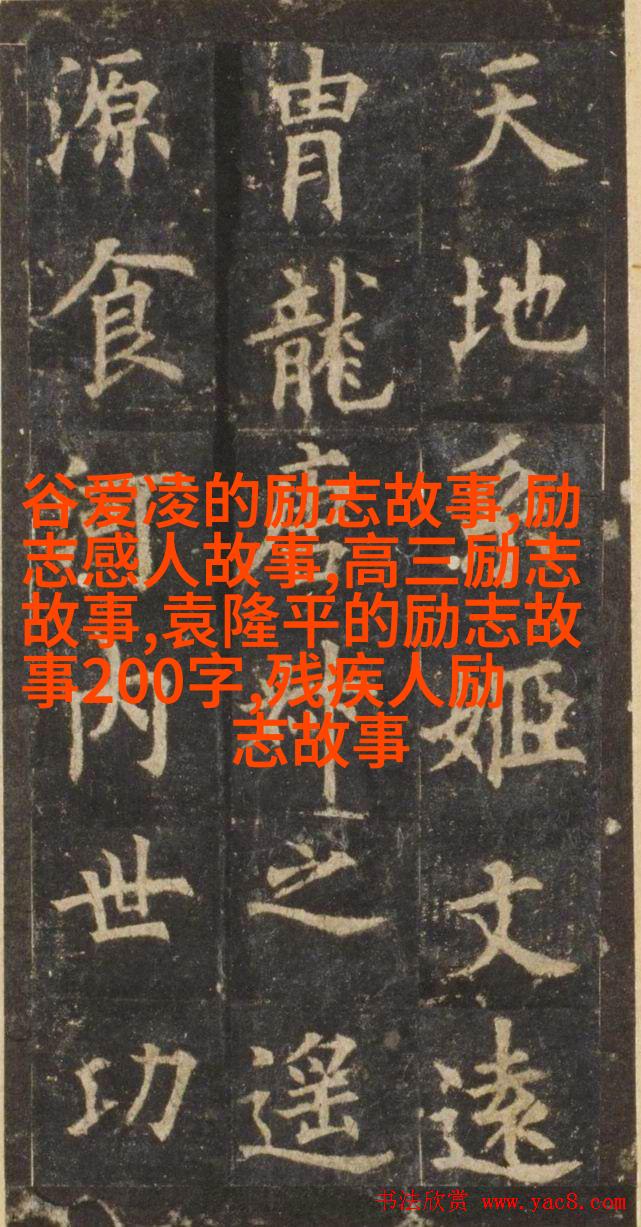 天地姬文遠
胄龍之遥
源食内世功
谷爱凌的励志故事,励
志感人故事,高三励志
故事,袁隆平的励志故
事200字,残疾人励
志故事
书法欣赏 www.yac8.com